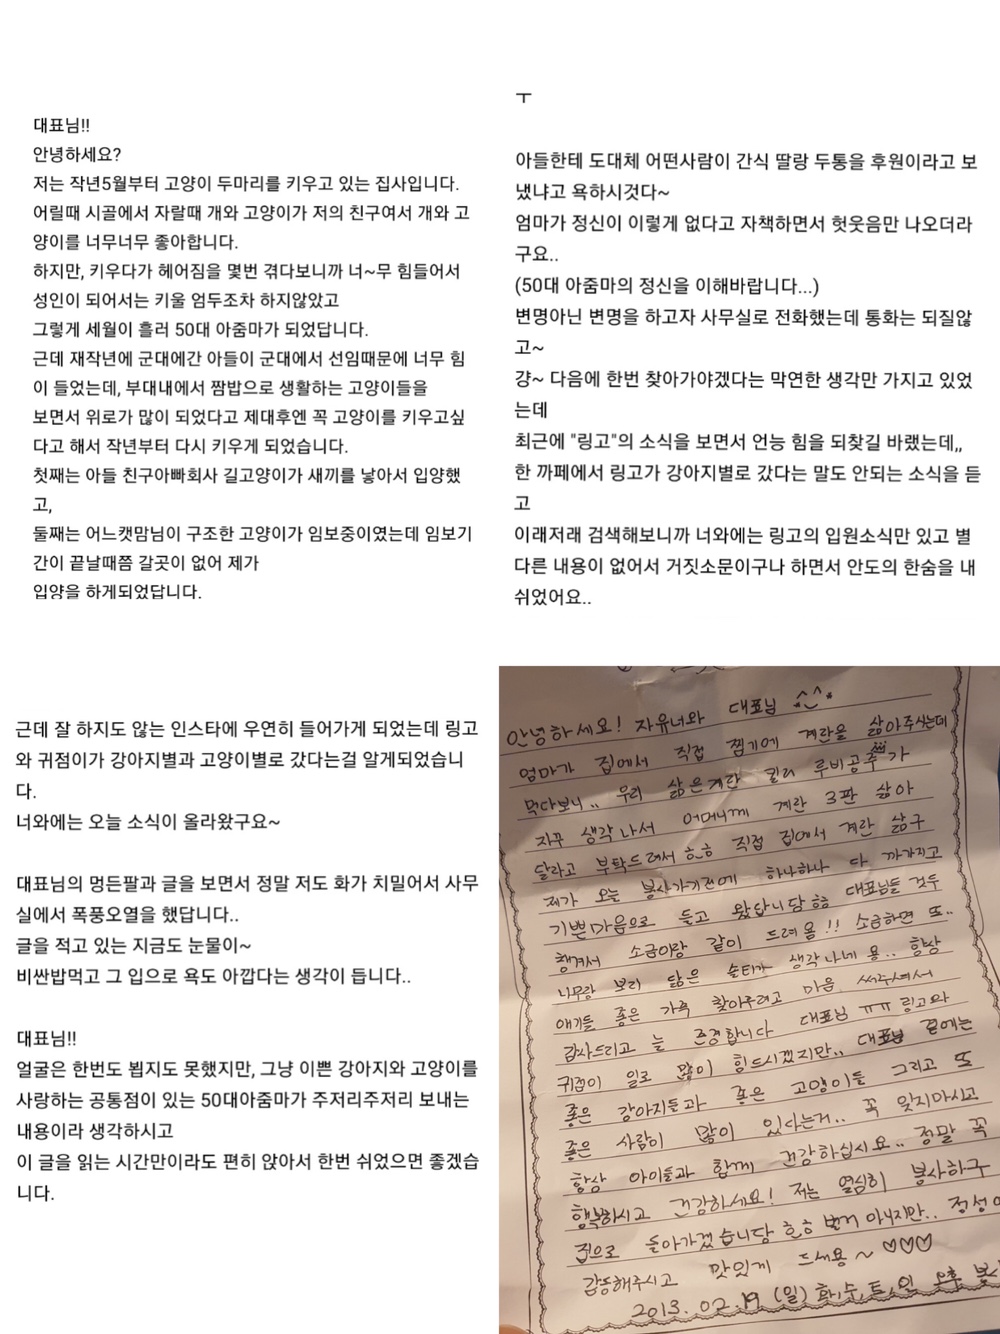 대표님!!
안녕하세요?
저는 작년5월부터 고양이 두마리를 키우고 있는 집사입니다.
어릴때 시골에서 자랄때 개와 고양이가 저의 친구여서 개와 고
양이를 너무너무 좋아합니다.
하지만, 키우다가 헤어짐을 몇번 겪다보니까 너~무 힘들어서
성인이 되어서는 키울 엄두조차 하지않았고
그렇게 세월이 흘러 50대 아줌마가 되었답니다.
근데 재작년에 군대에간 아들이 군대에서 선임때문에 너무 힘
이 들었는데, 부대내에서 짬밥으로 생활하는 고양이들을
보면서 위로가 많이 되었다고 제대후엔 꼭 고양이를 키우고싶
다고 해서 작년부터 다시 키우게 되었습니다.
첫째는 아들 친구아빠회사 길고양이가 새끼를 낳아서 입양했
고,
둘째는 어느캣맘님이 구조한 고양이가 임보중이였는데 임보기
간이 끝날때쯤 갈곳이 없어 제가
입양을 하게되었답니다.
ㅜ
아들한테 도대체 어떤사람이 간식 딸랑 두통을 후원이라고 보
냈냐고 욕하시것다~
엄마가 정신이 이렇게 없다고 자책하면서 헛웃음만 나오더라
구요..
(50대 아줌마의 정신을 이해바랍니다...)
변명아닌 변명을 하고자 사무실로 전화했는데 통화는 되질않
고~
걍~ 다음에 한번 찾아가야겠다는 막연한 생각만 가지고 있었
는데
최근에 "링고"의 소식을 보면서 언능 힘을 되찾길 바랬는데,,
한 까페에서 링고가 강아지별로 갔다는 말도 안되는 소식을 듣
고
이래저래 검색해보니까 너와에는 링고의 입원소식만 있고 별
다른 내용이 없어서 거짓소문이구나 하면서 안도의 한숨을 내
쉬었어요..
근데 잘 하지도 않는 인스타에 우연히 들어가게 되었는데 링고
와 귀점이가 강아지별과 고양이별로 갔다는걸 알게되었습니
다.
너와에는 오늘 소식이 올라왔구요~
대표님의 멍든팔과 글을 보면서 정말 저도 화가 치밀어서 사무
실에서 폭풍오열을 했답니다..
글을 적고 있는 지금도 눈물이~
비싼밥먹고 그 입으로 욕도 아깝다는 생각이 듭니다..
대표님!!
얼굴은 한번도 뵙지도 못했지만, 그냥 이쁜 강아지와 고양이를
사랑하는 공통점이 있는 50대아줌마가 주저리주저리 보내는
내용이라 생각하시고
이 글을 읽는 시간만이라도 편히 앉아서 한번 쉬었으면 좋겠습
니다.
안녕하세요! 자유너와 대표님 ^^
엄마가 집에서 직접 찜기에 계란을 삶아주시는데
먹다보니.. 우리 삶은계란 킬러 루비공주가
자꾸 생각나서 어머니께 계란 3판 삶아
달라고 부탁드려서 ㅎㅎ 직접 집에서 계란 삶구
제가 오늘 봉사가기전에 하나하나 다 까가지고
기쁜마음으로 들고 왔답니당 ㅎㅎ 대표님들 것두
챙겨서 소금이랑 같이 드려용!! 소금하면 또..
나무랑 보리 닮은 솔티가 생각나네용.. 항상
애기들 좋은 가족 찾아주려고 마음 써주셔서
감사드리고 늘 존경합니다 대표님 ㅠㅠ 링고와
귀점이 일로 많이 힘드시겠지만.. 대표님 곁에는
좋은 강아지들과 좋은 고양이들 그리고 또
좋은 사람이 많이 있다는거.. 꼭 잊지마시고
항상 아이들과 함께 건강하십시요.. 정말 꼭
행복하시고 건강하세요! 저는 열심히 봉사하구
집으로 돌아가겠습니당 ㅎㅎ 별거 아니지만.. 정성에
감동해주시고 맛있게 드세용~ ♡♡♡
2013.02.19 (일) 화,수,토,일 오후 봉사